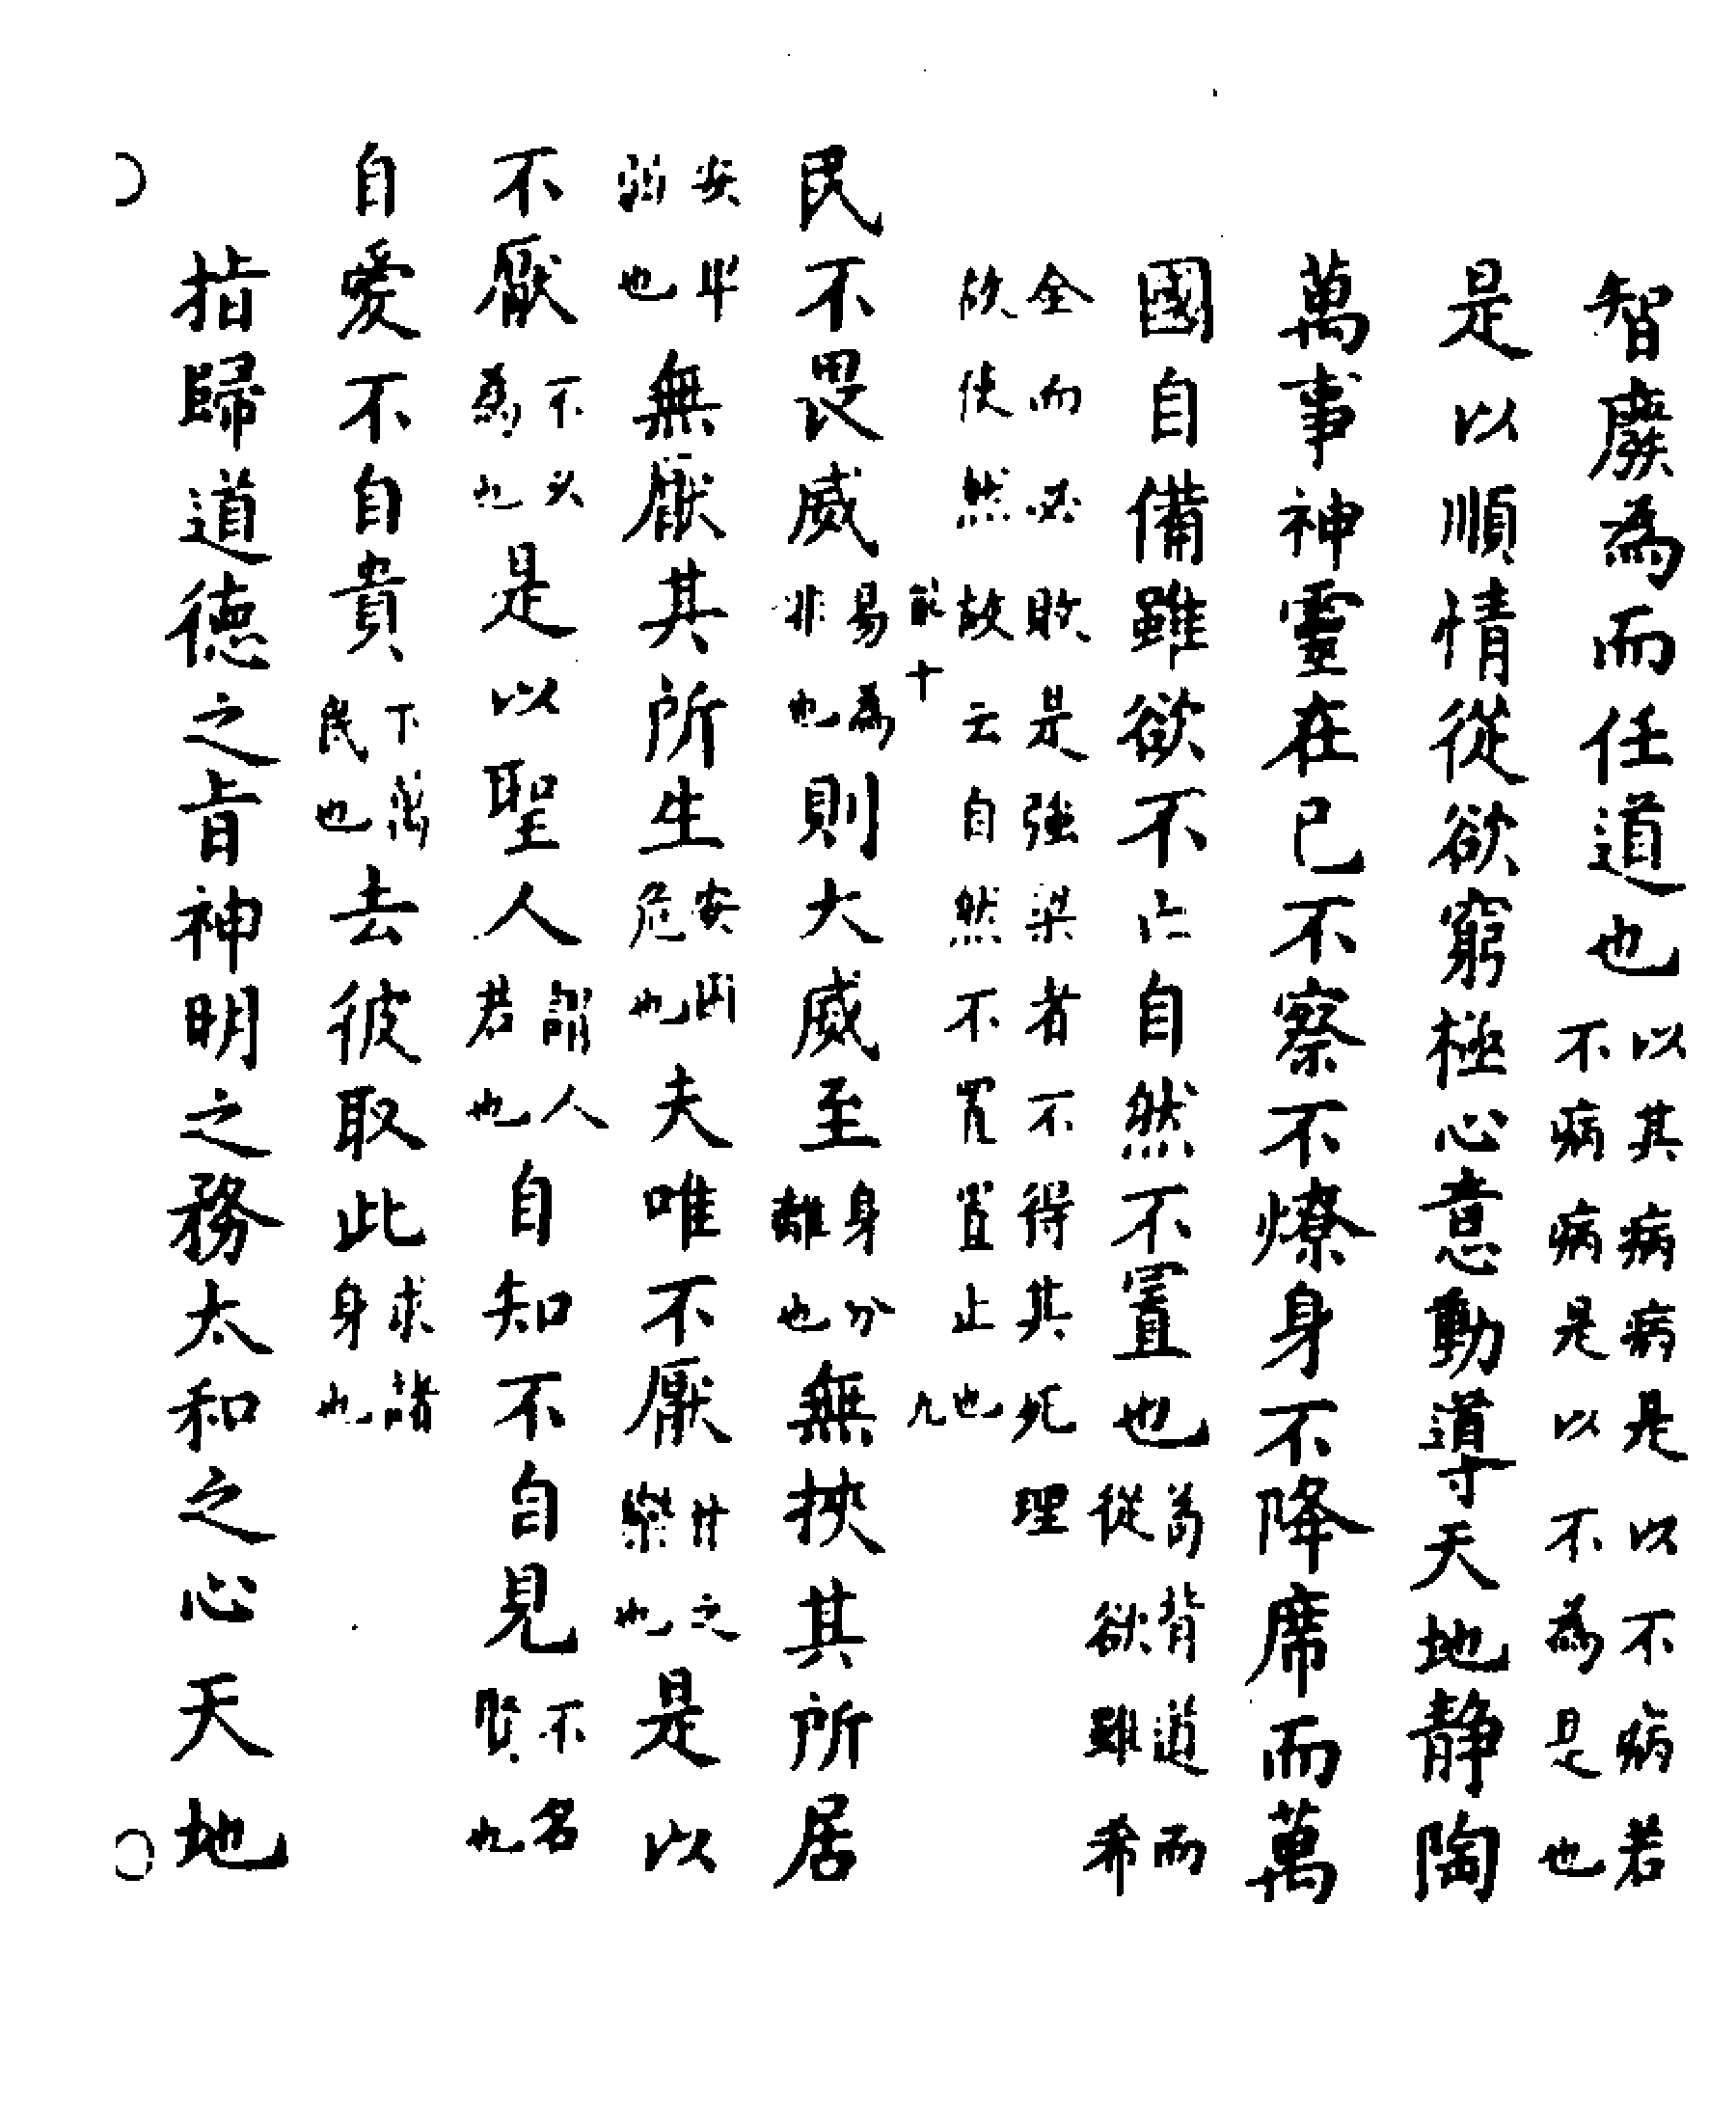 智廢為而任道也以其病病是以不病若
不病病是以不為是也
是以順情從欲窮極心意動導天地静陶
萬事神靈在己不察不燎身不降席而萬
國自備雖欲不亡自然不置也為背道而
從欲雖希
全而必敗是強梁者不得其死理
故使然故云自然不置置止也
九
民不畏威易為
非也則大威至身分
離也無挾其所居
安卑
弱也無厭其所生安凶
危也夫唯不厭甘之
樂也是以
不厭不以
為也是以聖人謂人
君也自知不自見不名
賢也
自愛不自貴下萬
民也去彼取此求諸
身也
指歸道德之旨神明之務太和之心天地